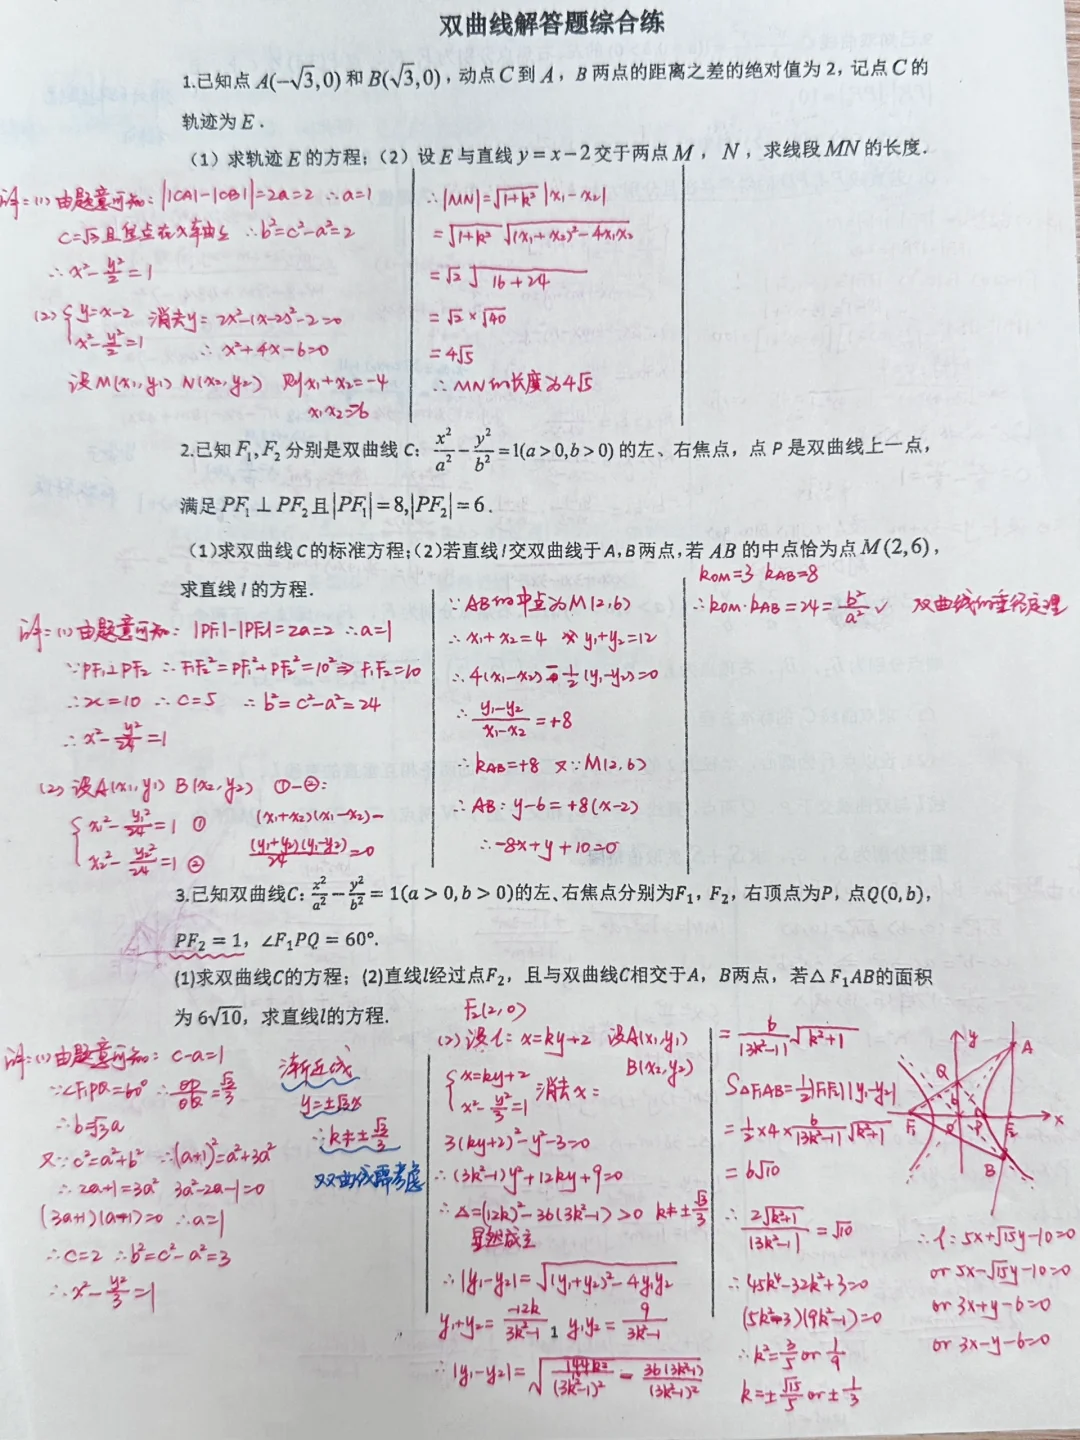 双曲线解答题综合练
1.已知点 A(−√3,0) 和 B(√3,0)，动点 C 到 A，B 两点的距离之差的绝对值为 2，记点 C 的
轨迹为 E．
（1）求轨迹 E 的方程；（2）设 E 与直线 y = x − 2 交于两点 M，N，求线段 MN 的长度．
详=(1) 由题意可知: ||CA|-|CB||=2a=2 ∴a=1
c=√3 且焦点在x轴上 ∴b²=c²-a²=2
∴x²-y²/2=1
(2) {y=x-2 消去y= 2x²-(x-2)²-2=0
x²-y²/2=1 ∴x²+4x-6=0
设M(x₁,y₁) N(x₂,y₂) 则x₁+x₂=-4
x₁x₂=-6
∴|MN|=√1+k² |x₁-x₂|
=√1+k² √(x₁+x₂)²-4x₁x₂
=√2 √16+24
=√2×√40
=4√5
∴MN的长度为4√5
2.已知 F₁,F₂ 分别是双曲线 C: x²/a² − y²/b² = 1(a>0,b>0) 的左、右焦点，点 P 是双曲线上一点，
满足 PF₁ ⊥ PF₂ 且|PF₁| = 8,|PF₂| = 6．
(1)求双曲线 C 的标准方程；(2)若直线 l 交双曲线于 A,B 两点,若 AB 的中点恰为点 M(2,6)，
求直线 l 的方程．
详=(1) 由题意可知: |PF|-|PF|=2a=2 ∴a=1
∵PF₁⊥PF₂ ∴F₁F₂²=PF₁²+PF₂²=10² ⇒F₁F₂=10
∴2c=10 ∴c=5 ∴b²=c²-a²=24
∴x²-y²/24=1
(2) 设A(x₁,y₁) B(x₂,y₂) ①-②:
{x₁²-y₁²/24=1 ① (x₁+x₂)(x₁-x₂)-
x₂²-y₂²/24=1 ② (y₁+y₂)(y₁-y₂)/24=0
∵AB的中点为M(2,6)
∴x₁+x₂=4 y₁+y₂=12
∴4(x₁-x₂)-1/2(y₁-y₂)=0
∴y₁-y₂/x₁-x₂=+8
∴kAB=+8 又∵M(2,6)
∴AB: y-6=+8(x-2)
∴-8x+y+10=0
kOM=3 kAB=8
∴kOM·kAB=24=b²/a² ✓ 双曲线的垂径定理
3.已知双曲线C: x²/a² − y²/b² = 1(a > 0, b > 0)的左、右焦点分别为F₁，F₂，右顶点为P，点Q(0, b)，
PF₂ = 1，∠F₁PQ = 60°.
(1)求双曲线C的方程；(2)直线l经过点F₂，且与双曲线C相交于A，B两点，若△ F₁AB的面积
为 6√10，求直线l的方程.
详=(1) 由题意可知: c-a=1
∵∠F₁PQ=60° ∴OP/OQ=√3/3
∴b=√3a
又∵c²=a²+b² ∴(a+1)²=a²+3a²
∴2a+1=3a² 3a²-2a-1=0
(3a+1)(a-1)=0 ∴a=1
∴c=2 ∴b²=c²-a²=3
∴x²-y²/3=1
渐近线
y=±√3x
∴k≠±√3/3
双曲线需考虑
F₂(2,0)
(2) 设l: x=ky+2 设A(x₁,y₁)
B(x₂,y₂)
{x=ky+2 消去x=
x²-y²/3=1
3(ky+2)²-y²-3=0
∴(3k²-1)y²+12ky+9=0
∴Δ=(12k)²-36(3k²-1)>0 k≠±√3/3
显然成立
∴|y₁-y₂|=√(y₁+y₂)²-4y₁y₂
y₁+y₂=-12k/3k²-1 y₁y₂=9/3k²-1
∴|y₁-y₂|=√144k²/(3k²-1)² - 36(3k²-1)/(3k²-1)²
1
=6/|3k²-1| √k²+1
S△F₁AB=1/2|F₁F₂||y₁-y₂|
=1/2×4×6/|3k²-1| √k²+1
=6√10
∴2√k²+1/|3k²-1|=√10
∴45k⁴-32k²+3=0
(5k²-3)(9k²-1)=0
∴k²=3/5 or 1/9
k=±√15/5 or ±1/3
y
A
Q
F₁
P
F₂
x
B
∴l: 5x+√15y-10=0
or 5x-√15y-10=0
or 3x+y-6=0
or 3x-y-6=0